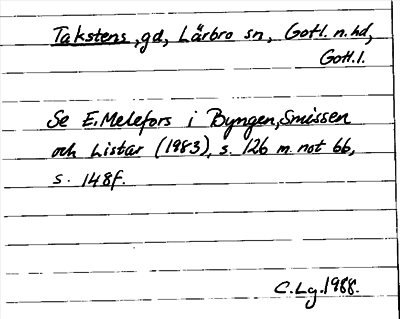 Takstens, gd, Lärbro sn, Gotl. n. hd,
Gotl. l.
Se E. Melefors i Byngen, Smissen
och Listar (1983), s. 126 m. not 66,
s. 148f.
C. Lg. 1988.